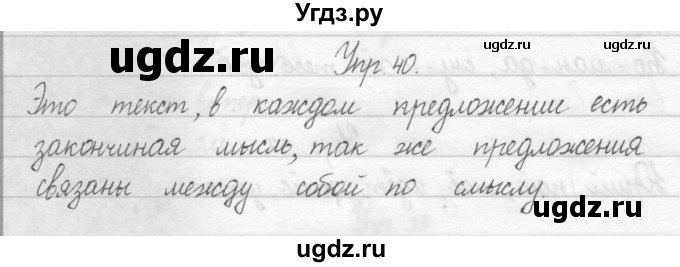 Угдз.ру
ugdz.ru ugdz.ru
Упр 40.
Это текст, в каждом предложении есть
закончиная мысль, так же предложения
связаны между собой по смыслу
ugdz.ru
ugdz.ru